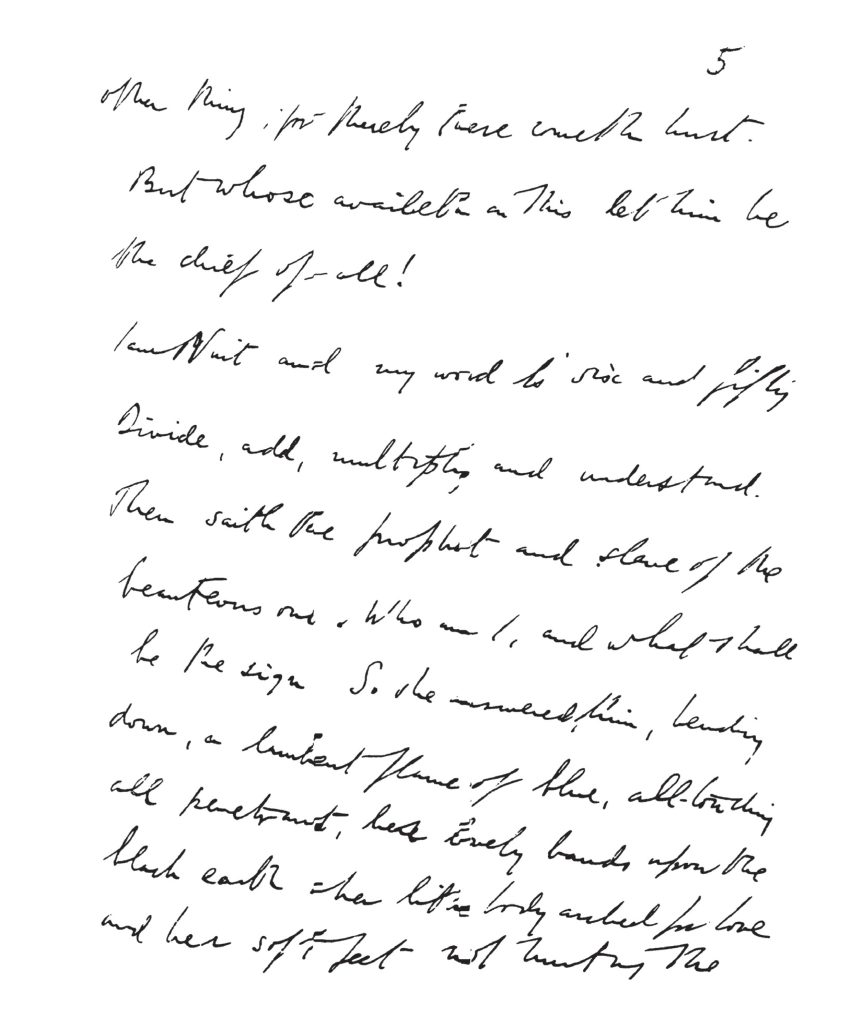 5
other thing; for thereby there cometh hurt.
But whoso availeth in this let him be
the chief of all!
I am Nuit and my word is six and fifty
Divide, add, multiply and understand.
Then saith the prophet and slave of the
beauteous one. Who am I, and what shall
be the sign So she answered him, bending
down, a lambent flame of blue, all-touching
all penetrant, her lovely hands upon the
black earth & her lithe body arched for love
and her soft feet not hurting the